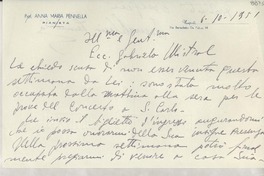 Prof. ANNA MARIA PENNELLA
PIANISTA
Napoli, 6-10-1951
Ill.ma Gent.ma
Ecc. Gabriela Mistral
La chiedo scusa di non esser venuta questa
settimana da Lei; sono stata molto
occupata dalla mattina alla sera per le
prove del Concerto a S. Carlo.
Le invio i biglietti d'ingresso augurandomi
che io possa onorarmi della Sua insigne presenza
Nella prossima settimana potrei
mente pregarmi di venire a casa Sua